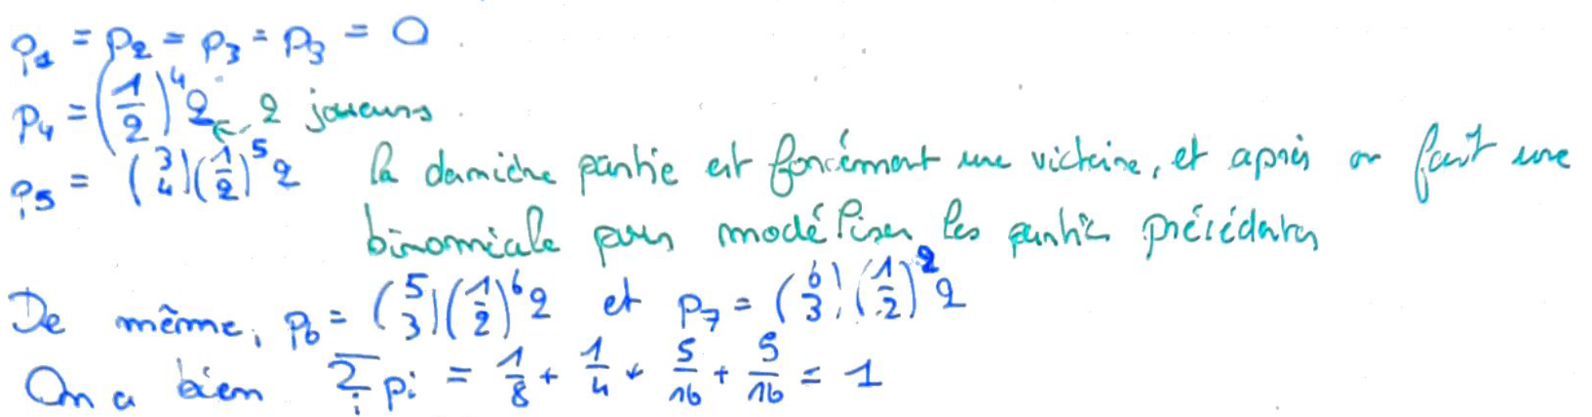 p₁ = p₂ = p₃ = p₃ = 0
p₄ = (1/2)⁴ 2 ← 2 joueurs
p₅ = (3 4)(1/2)⁵ 2 la dernière partie est forcément une victoire, et après on fait une
binomiale pour modéliser les partie précédentes
De même, p₆ = (5 3)(1/2)⁶ 2 et p₇ = (6 3)(1/2)² 2
On a bien Σᵢ pᵢ = 1/8 + 1/4 + 5/16 + 5/16 = 1